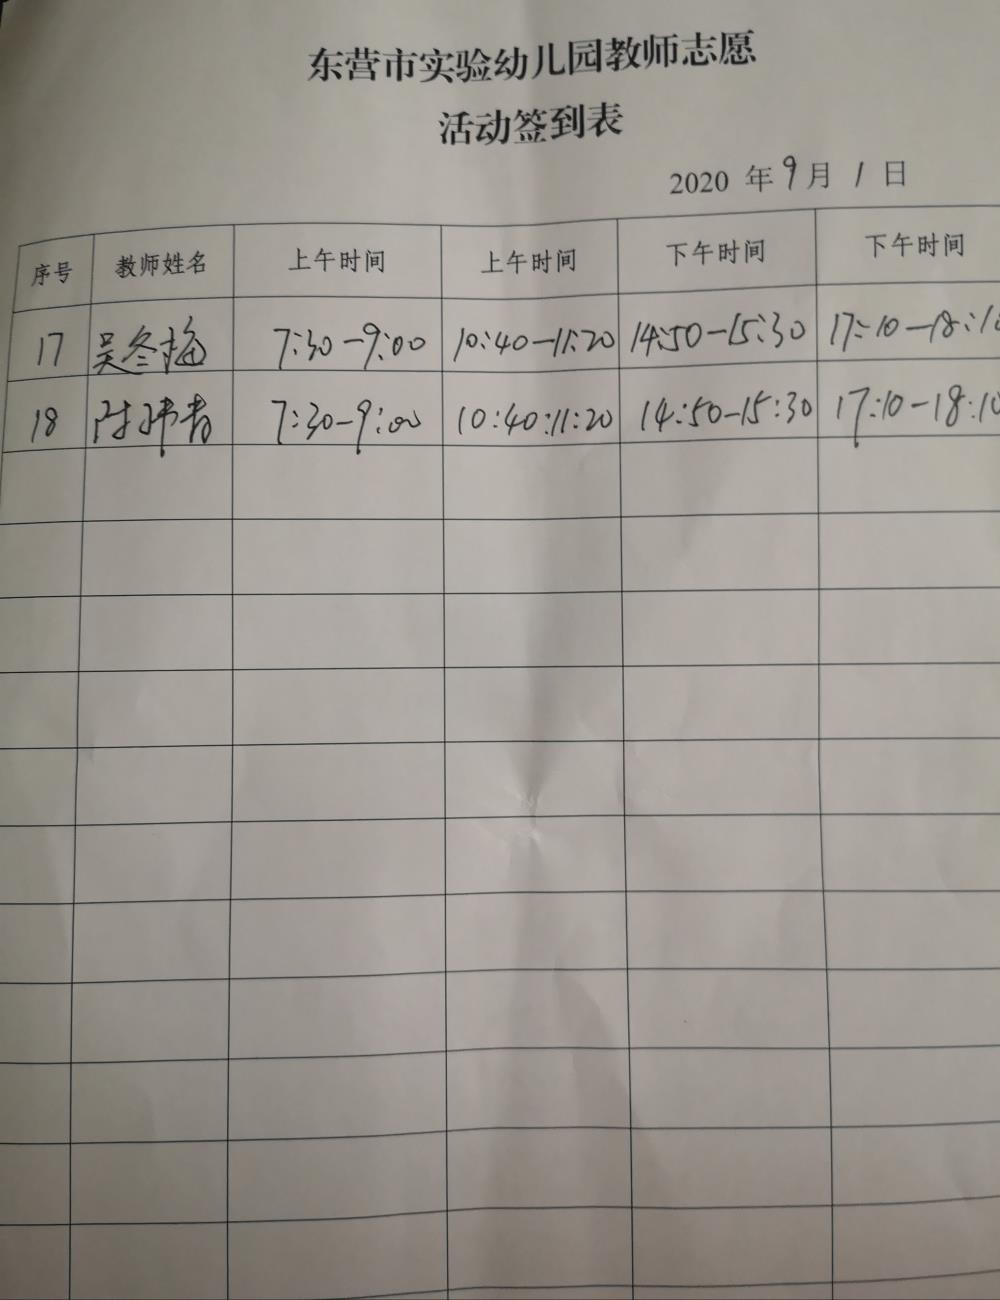 东营市实验幼儿园教师志愿
活动签到表
2020 年 9 月 1 日
序号 教师姓名 上午时间 上午时间 下午时间 下午时间
17 吴冬梅 7:30-9:00 10:40-11:20 14:50-15:30 17:10-18:10
18 7:30-9:00 10:40:11:20 14:50-15:30 17:10-18:10